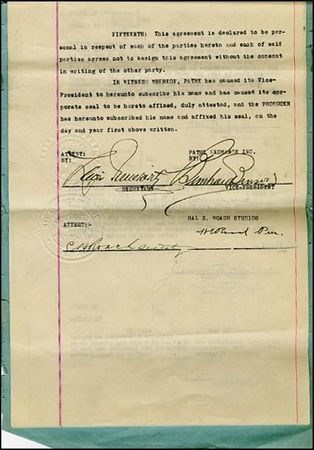 FIFTEENTH: This agreement is declared to be per-
sonal in respect of each of the parties hereto and each of said
parties agrees not to assign this agreement without the consent
in writing of the other party.
IN WITNESS WHEREOF, PATHE has caused its Vice-
President to hereunto subscribe his name and has caused its cor-
porate seal to be hereto affixed, duly attested, and the PRODUCER
has hereunto subscribed his name and affixed his seal, on
the day and year first above written.
ATTEST: PATHE EXCHANGE INC.
BY: BY:
SECRETARY VICE-PRESIDENT
HAL E. ROACH STUDIOS
ATTEST:-
C H Roach